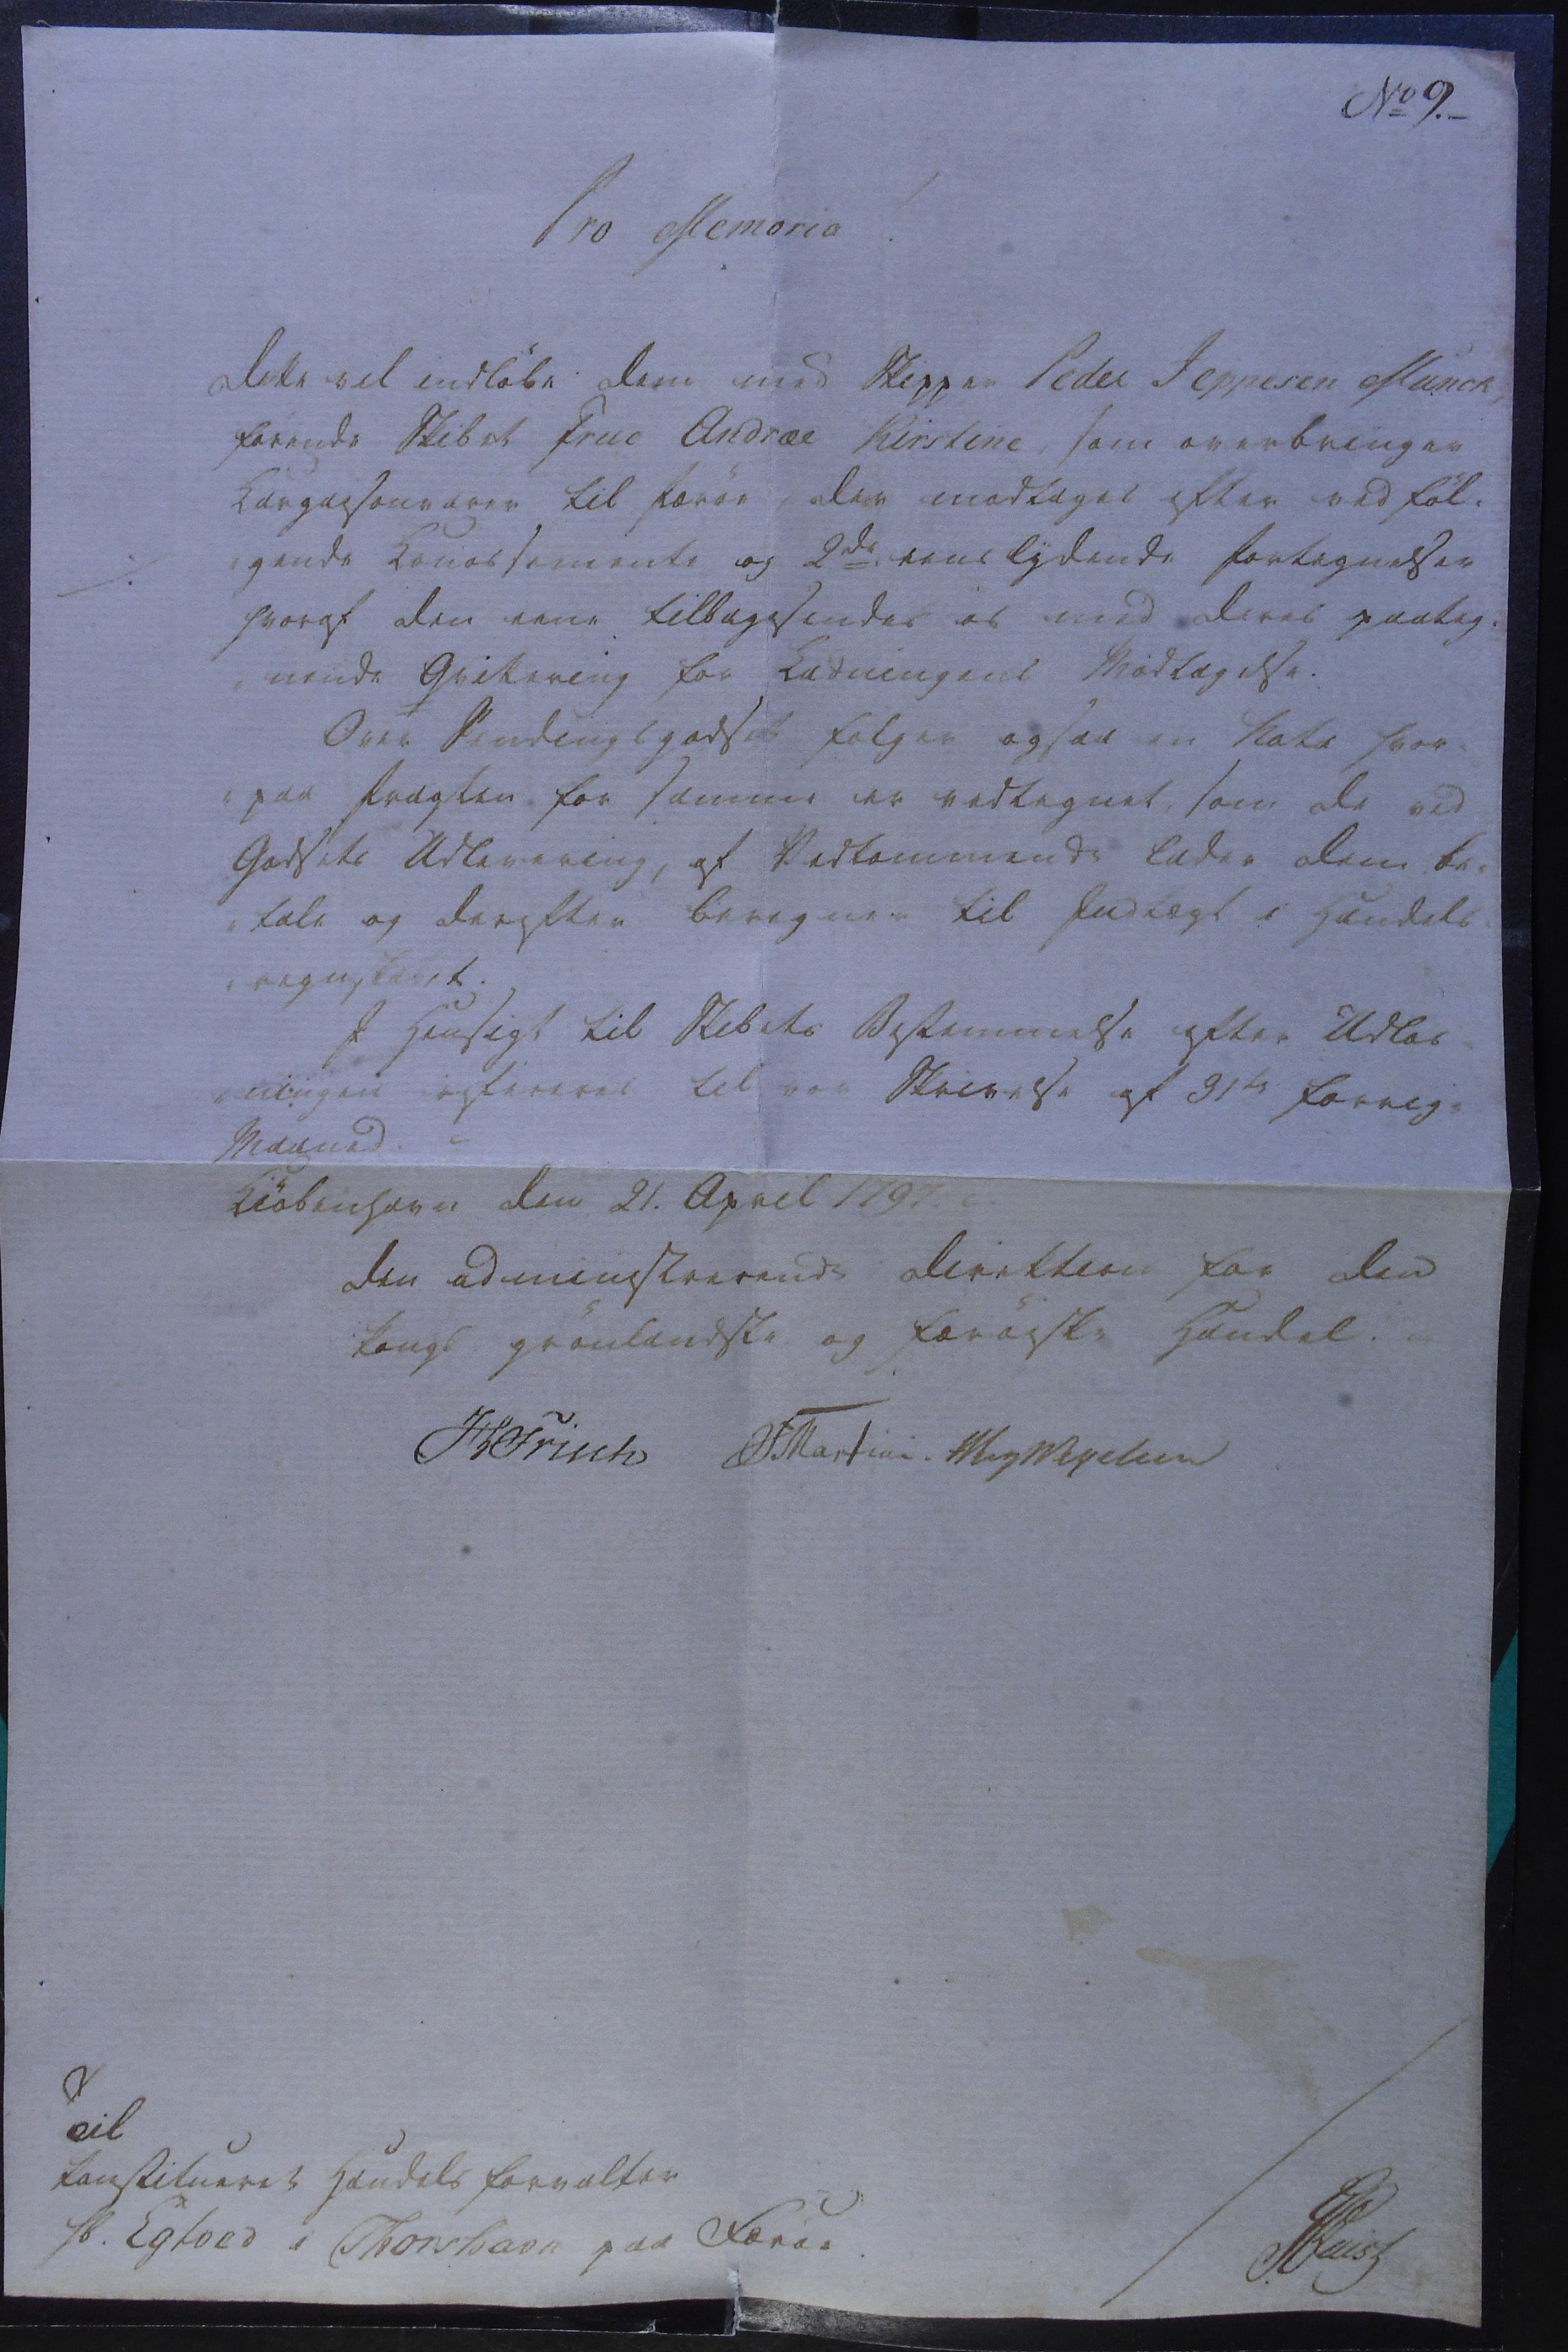 No 9.
Pro Memoria!
Dette vel indløbe Dem med Skipper Peder Jeppesen Munck,
førende Skibet Frue Andræe Kirstine, som overbringer
Cargaisonvarer til Færöe, der modtages efter ved föl-
gende Connossemente og 2de eenslydende Fortegnelser
hvoraf den eene tilbagesendes os med Deres paateg-
nende Qvitering for Ladningens Modtagelse.
Over Sendingsgodset følger ogsaa en Nota hvor-
paa Fragten for samme er vedtegnet, som De ved
Godsets Udlevering, af Vedkommende lader Dem be-
tale og derefter beregner til Indtægt i Handels-
regnskabet.
I Hensigt til Skibets Bestemmelse efter Udlos-
ningen refereres til vor Skrivelse af 31te forrige
Maaned.
Kiöbenhavn den 21. April 1797.
Den administrerende Direktion for den
kongl. grönlandske og færöeske Handel.
Frisch FMartini. Wegelsen
Til
Constitueret Handels forvalter
Hr. Egtved i Thorshavn paa Færöe.